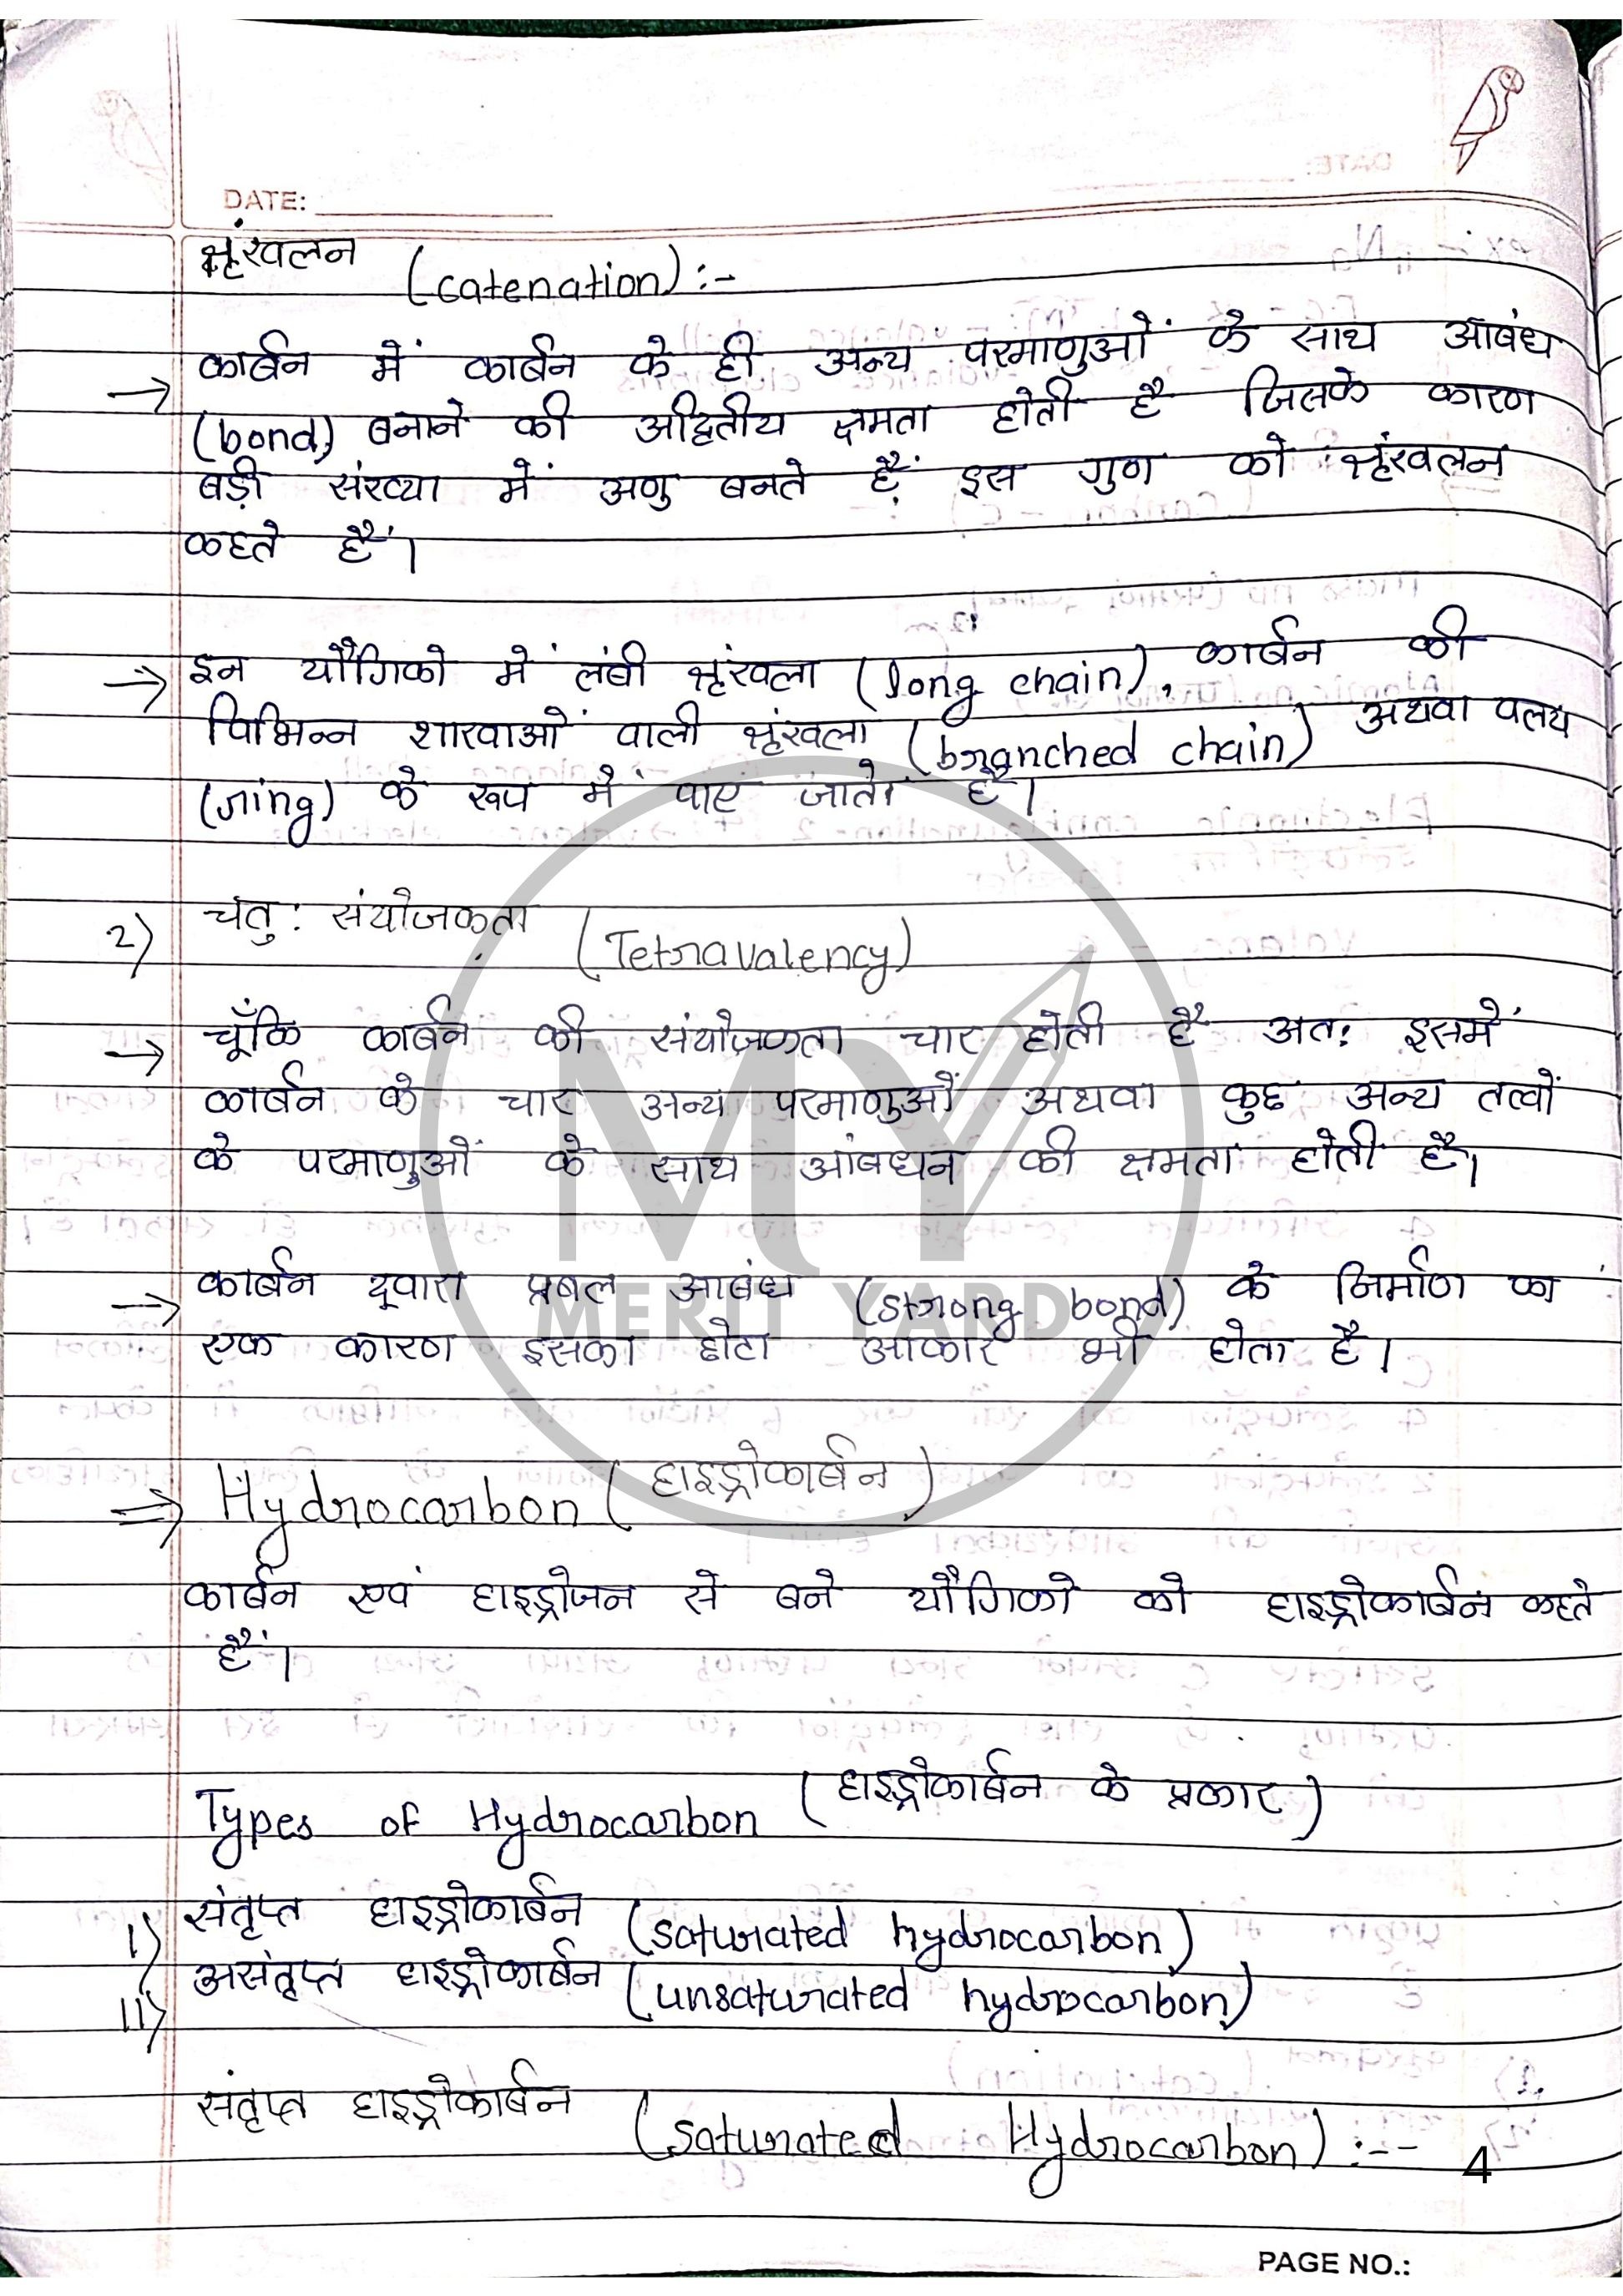 DATE:
श्रृंखलन (catenation) :-
→ कार्बन में कार्बन के ही अन्य परमाणुओं के साथ आबंध
(bond) बनाने की अद्वितीय क्षमता होती है जिसके कारण
बड़ी संख्या में अणु बनते हैं, इस गुण को श्रृंखलन
कहते हैं।
→ इन यौगिको में लंबी श्रृंखला (long chain), कार्बन की
विभिन्न शाखाओं वाली श्रृंखला (branched chain) अथवा वलय
(ring) के रूप में पाए जाते हैं।
2) चतु: संयोजकता (Tetravalency)
→ चूँकि कार्बन की संयोजकता चार होती है अत: इसमें
कार्बन के चार अन्य परमाणुओं अथवा कुछ अन्य तत्वों
के परमाणुओं के साथ आंबधन की क्षमता होती है।
→ कार्बन द्वारा प्रबल आबंध (strong bond) के निर्माण का
एक कारण इसका छोटा आकार भी होता है।
MY
MERIT YARD
⇒ Hydrocarbon (हाइड्रोकार्बन)
कार्बन एवं हाइड्रोजन से बने यौगिको को हाइड्रोकार्बन कहते
हैं।
Types of Hydrocarbon (हाइड्रोकार्बन के प्रकार)
I) संतृप्त हाइड्रोकार्बन (saturated hydrocarbon)
II) असंतृप्त हाइड्रोकार्बन (unsaturated hydrocarbon)
संतृप्त हाइड्रोकार्बन (saturated Hydrocarbon) :--
4
PAGE NO.: